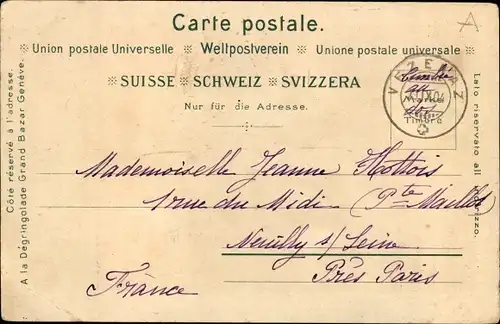 Carte postale.
Union postale Universelle Weltpostverein Unione postale universale
SUISSE SCHWEIZ SVIZZERA
Nur für die Adresse.
Côté réservé à l'adresse.
A la Dégringolade Grand Bazar Genève.
Lato riservato all
izzo.
VEZENAZ
Timbre
au
Mademoiselle Jeanne Hottois
1 rue du Midi (Pte Maillot)
Neuilly s/ Seine
Près Paris
France
A